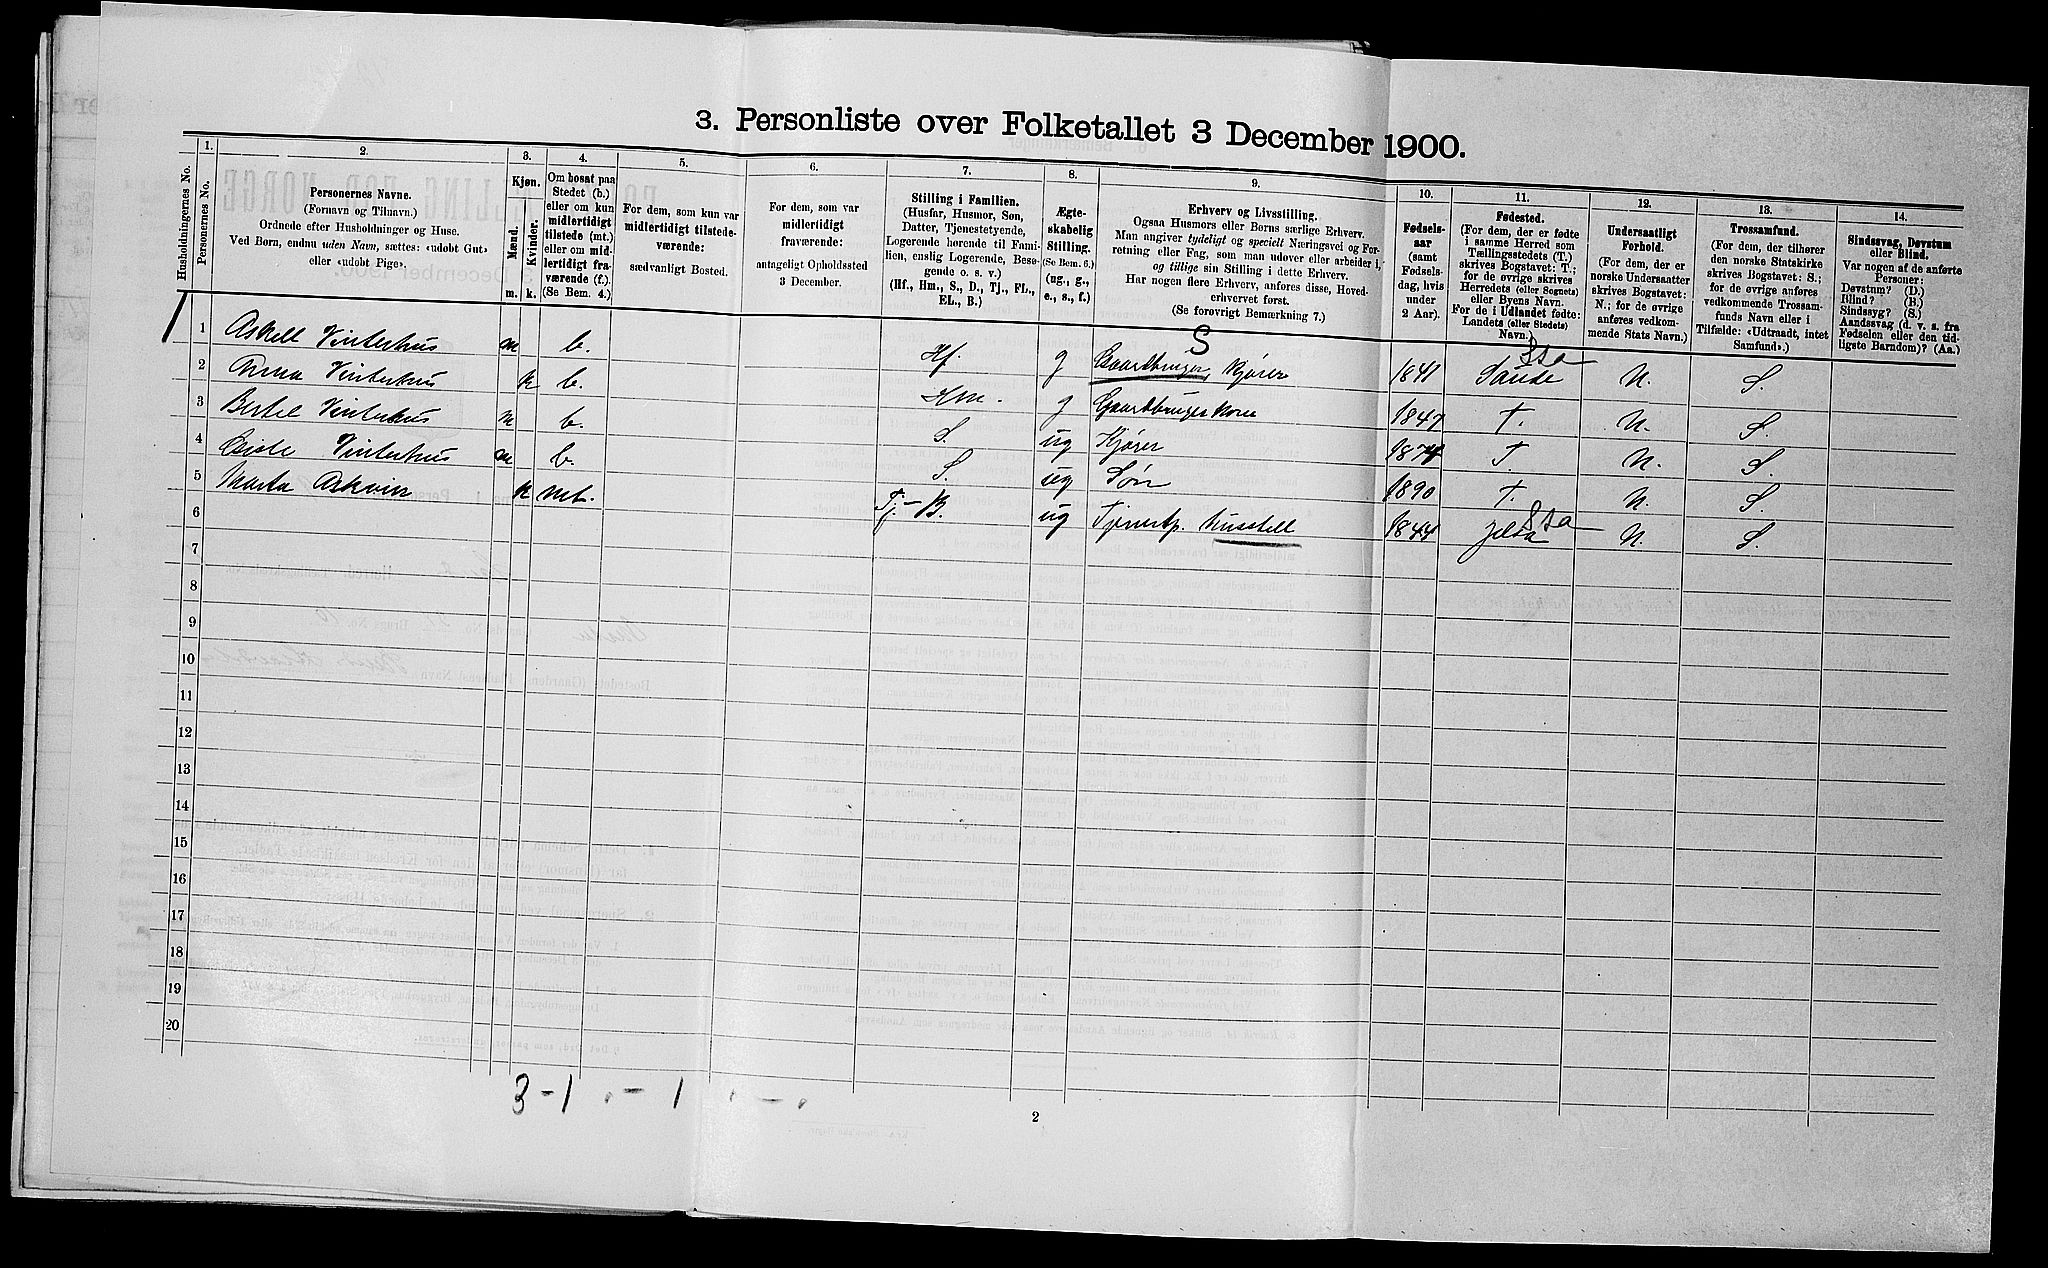 3. Personliste over Folketallet 3 December 1900.
Husholdningernes No.
1.
Personernes No.
2.
Personernes Navne.
(Fornavn og Tilnavn.)
Ordnede efter Husholdninger og Huse.
Ved Børn, endnu uden Navn, sættes: «udøbt Gut»
eller «udøbt Pige».
3.
Kjøn.
Mænd.
Kvinder.
m. k.
4.
Om bosat paa
Stedet (b.)
eller om kun
midlertidigt
tilstede (mt.)
eller om mid-
lertidigt fra-
værende (f.).
(Se Bem. 4.)
5.
For dem, som kun var
midlertidigt tilstede-
værende:
sædvanligt Bosted.
6.
For dem, som var
midlertidigt
fraværende:
antageligt Opholdssted
3 December.
7.
Stilling i Familien.
(Husfar, Husmor, Søn,
Datter, Tjenestetyende,
Logerende hørende til Fami-
lien, enslig Logerende, Besø-
gende o. s. v.)
(Hf., Hm., S., D., Tj., FL.,
EL., B.)
8.
Ægte-
skabelig
Stilling.
(Se Bem. 6.)
(ug., g.,
e., s., f.)
9.
Erhverv og Livsstilling.
Ogsaa Husmors eller Børns særlige Erhverv.
Man angiver tydeligt og specielt Næringsvei og For-
retning eller Fag, som man udøver eller arbeider i,
og tillige sin Stilling i dette Erhverv.
Har nogen flere Erhverv, anføres disse, Hoved-
erhvervet først.
(Se forøvrigt Bemærkning 7.)
10.
Fødsels-
aar
(samt
Fødsels-
dag, hvis
under
2 Aar).
11.
Fødested.
(For dem, der er fødte
i samme Herred som
Tællingsstedets (T.)
skrives Bogstavet: T.;
for de øvrige skrives
Herredets (eller Sognets)
eller Byens Navn.
For de i Udlandet fødte:
Landets (eller Stedets)
Navn.)
12.
Undersaatligt
Forhold.
(For dem, der er
norske Undersaatter
skrives Bogstavet:
N.; for de øvrige
anføres vedkom-
mende Stats Navn.)
13.
Trossamfund.
(For dem, der tilhører
den norske Statskirke
skrives Bogstavet: S.;
for de øvrige anføres
vedkommende Trossam-
funds Navn eller i
Tilfælde: «Udtraadt, intet
Samfund».)
14.
Sindssvag, Døvstum
eller Blind.
Var nogen af de anførte
Personer:
Døvstum? (D.)
Blind? (B.)
Sindssyg? (S.)
Aandssvag (d. v. s. fra
Fødselen eller den tid-
ligste Barndom)? (Aa.)
S
1 1 Askell Vinterhus m b. Hf. g Gaardbruger, Kjører 1841 Sta Saude N. S.
2 Anna Vinterhus k b. Hm. g Gaardbrugerkone 1847 T. N. S.
3 Bertel Vinterhus m b. S. ug Kjører 1874 T. N. S.
4 Vinterhus m b. S. ug Søn 1890 T. N. S.
5 Marta Askvin k mt. Tj. – B. ug Tjenestp. husstell 1844 Sta Jelsa N. S.
6
7
8
9
10
11
12
13
14
15
16
17
18
19
20
3 – 1 . – 1 . – .
2